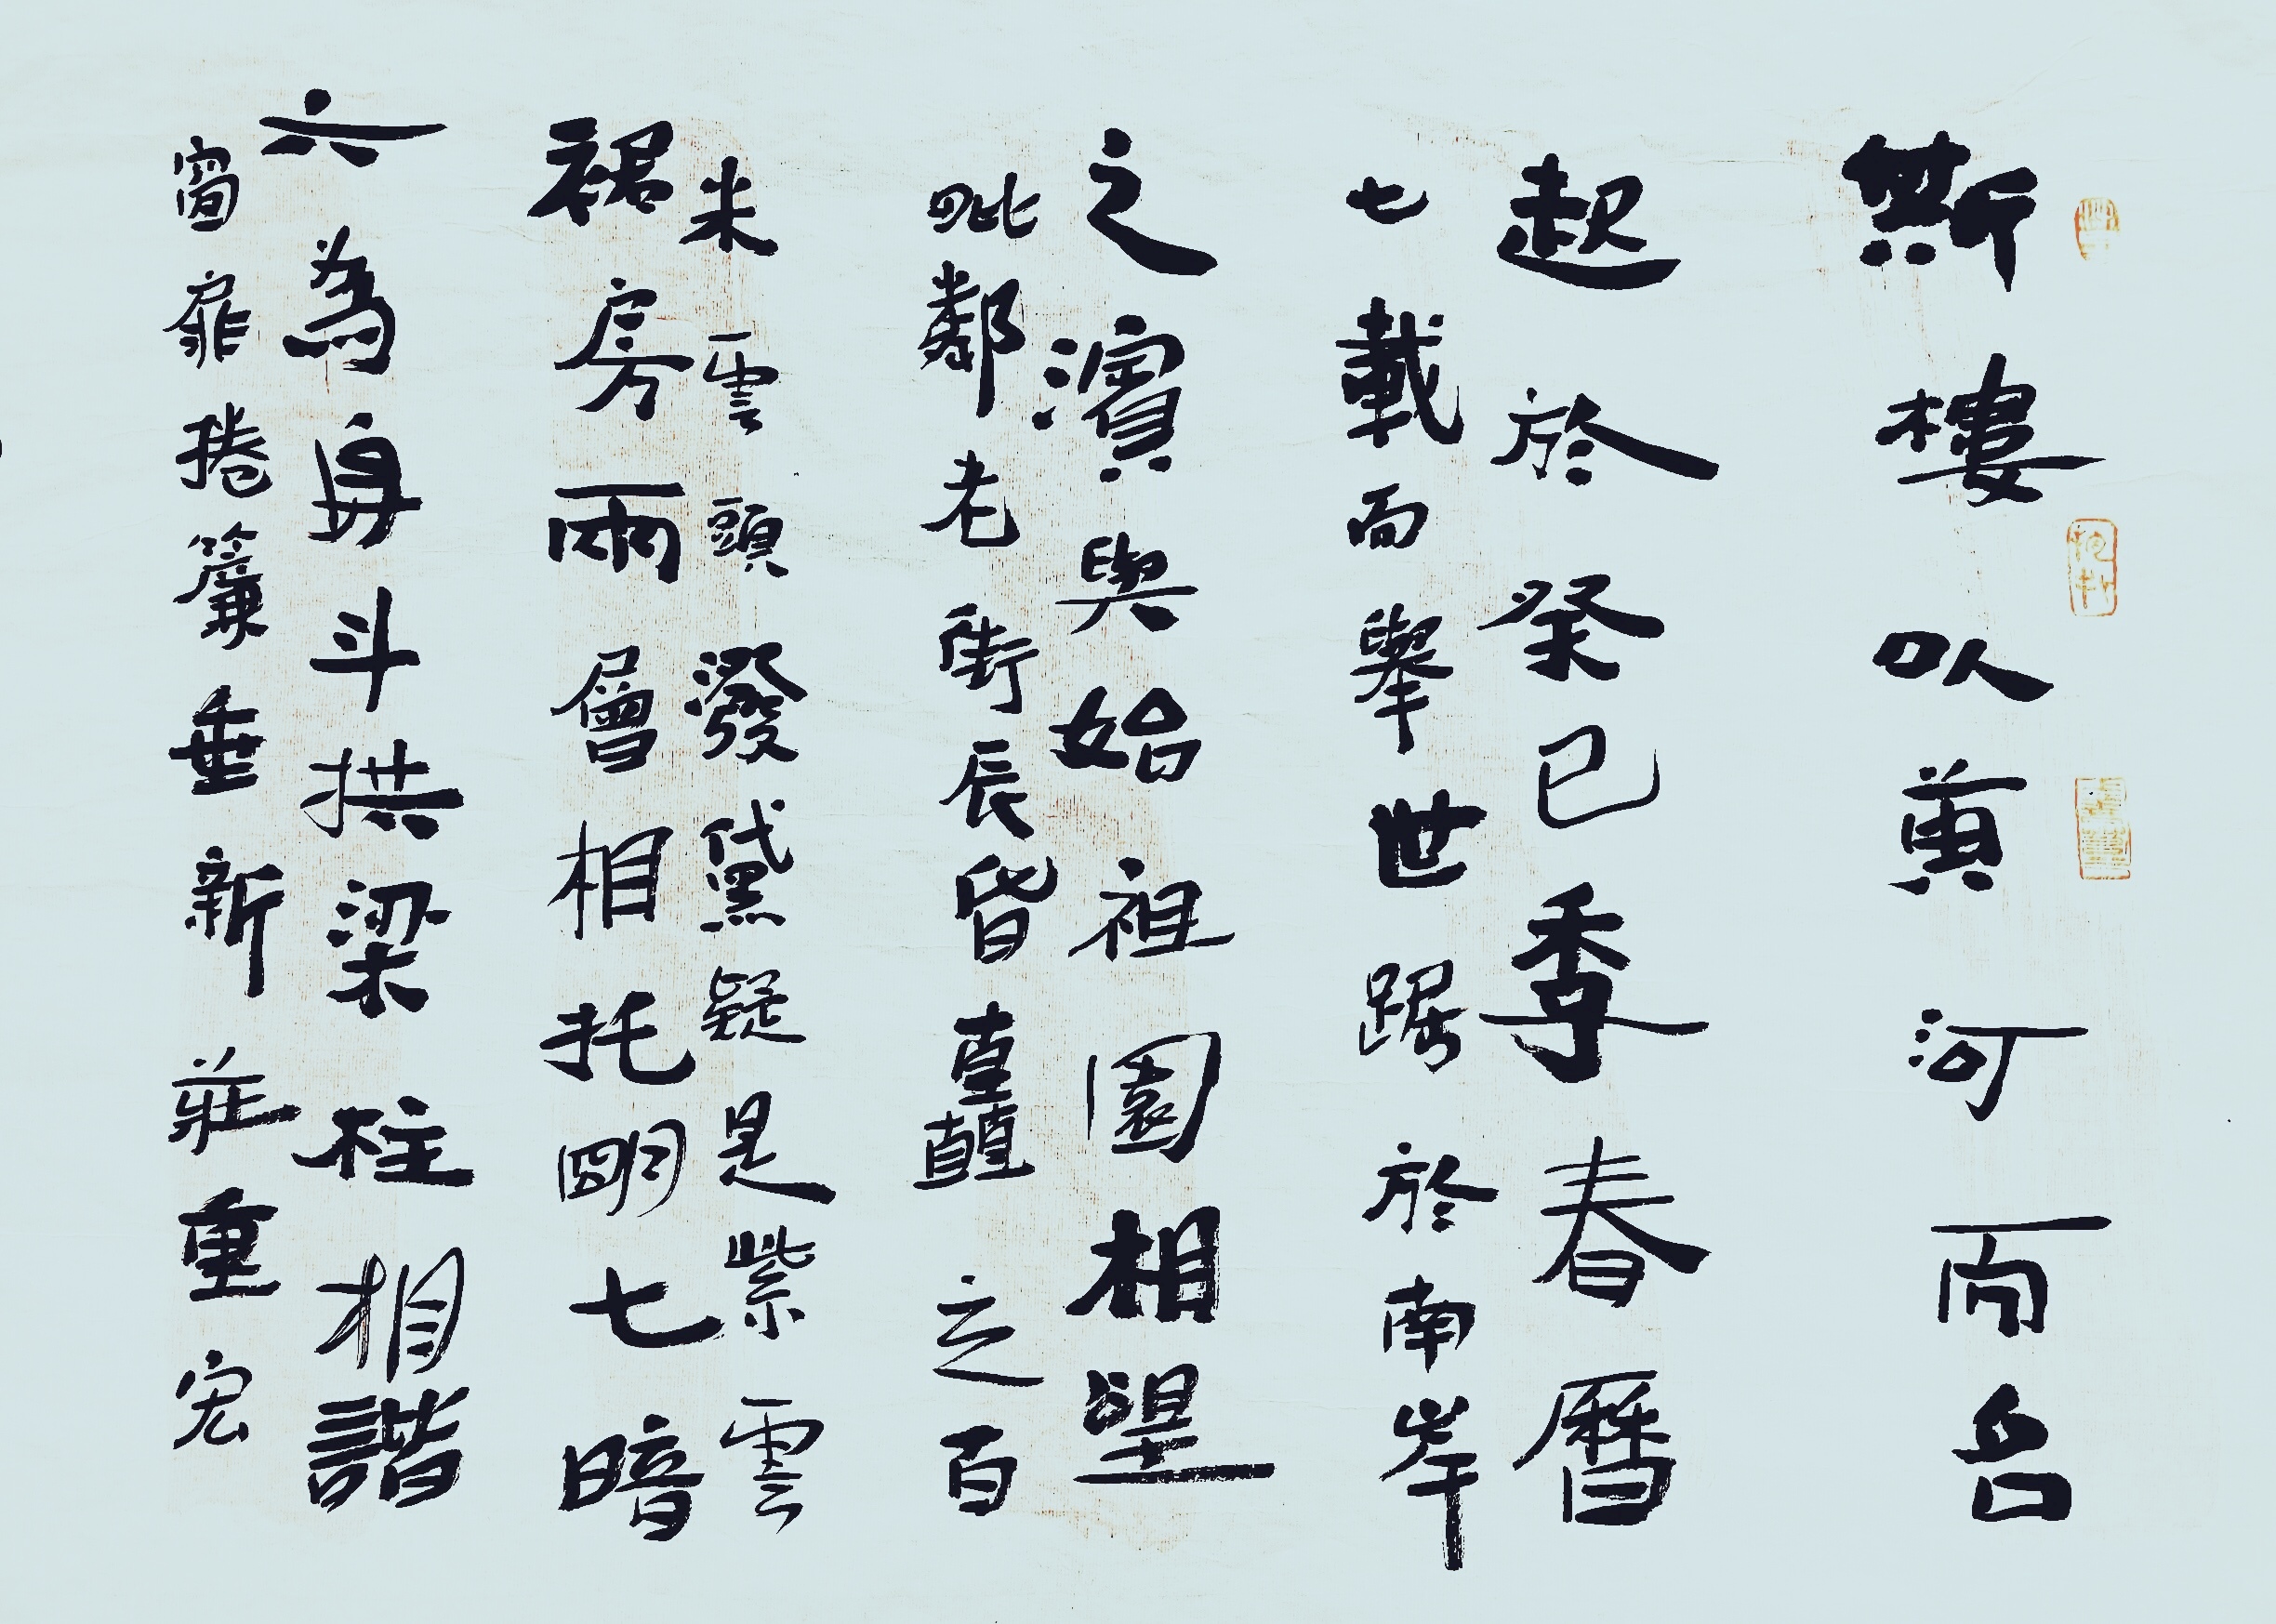 斯樓以黃河而名
起於癸巳季春曆
七載而舉世踞於南岸
之濱與始祖園相望
毗鄰老街辰皆矗之百
米雲頭潑黛疑是紫雲
裙房兩層相托明七暗
六為身斗拱梁柱相諧
窗扉捲簾垂新莊重宏